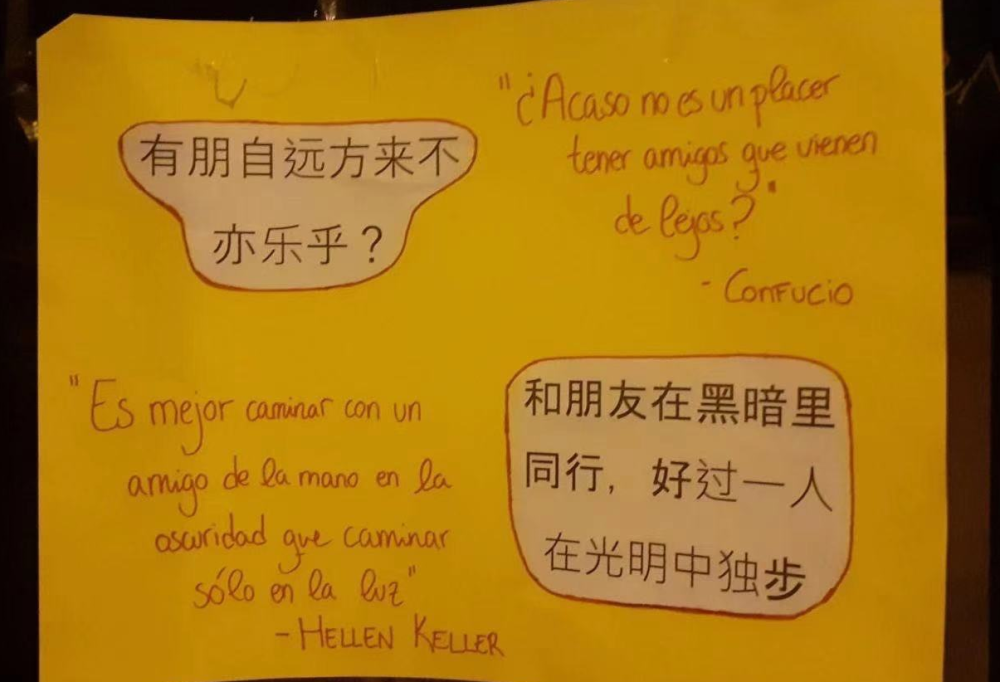 有朋自远方来不
亦乐乎？
"¿Acaso no es un placer
tener amigos que vienen
de lejos?"
- CONFUCIO
"Es mejor caminar con un
amigo de la mano en la
oscuridad que caminar
sólo en la luz"
- HELLEN KELLER
和朋友在黑暗里
同行，好过一人
在光明中独步